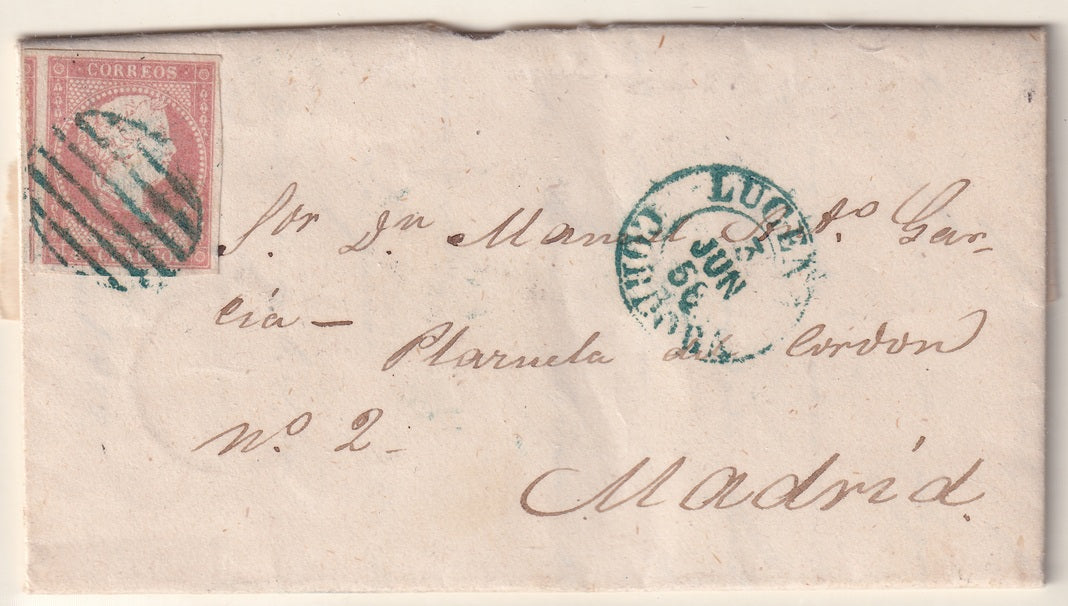 CORREOS
LUCENA
3
JUN
CORDOBA
Sor Dn Manuel Garcia—
Plazuela del Cordon
no. 2—
Madrid.